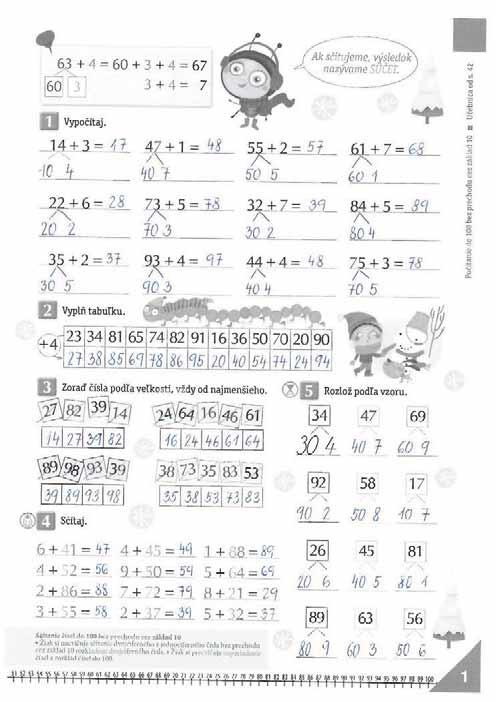 63 + 4 = 60 + 3 + 4 = 67
60 3 3 + 4 = 7
Ak sčitujeme, výsledok
nazývame SÚČET.
Počítanie do 100 bez prechodu cez základ 10 ■ Učebnica od s. 42
1 Vypočítaj.
14 + 3 = 17 47 + 1 = 48 55 + 2 = 57 61 + 7 = 68
10 4 40 7 50 5 60 1
22 + 6 = 28 73 + 5 = 78 32 + 7 = 39 84 + 5 = 89
20 2 70 3 30 2 80 4
35 + 2 = 37 93 + 4 = 97 44 + 4 = 48 75 + 3 = 78
30 5 90 3 40 4 70 5
2 Vyplň tabuľku.
+4 23 34 81 65 74 82 91 16 36 50 70 20 90
27 38 85 69 78 86 95 20 40 54 74 24 94
3 Zoraď čísla podľa veľkosti, vždy od najmenšieho.
27 82 39 14 24 64 16 46 61
14 27 39 82 16 24 46 61 64
89 98 93 39 38 73 35 83 53
39 89 93 98 35 38 53 73 83
4 Sčítaj.
6 + 41 = 47 4 + 45 = 49 1 + 88 = 89
4 + 52 = 56 9 + 50 = 59 5 + 64 = 69
2 + 86 = 88 7 + 72 = 79 8 + 21 = 29
3 + 55 = 58 2 + 37 = 39 5 + 32 = 37
5 Rozlož podľa vzoru.
34 47 69
30 4 40 7 60 9
92 58 17
90 2 50 8 10 7
26 45 81
20 6 40 5 80 1
89 63 56
80 9 60 3 50 6
Sčítanie čísel do 100 bez prechodu cez základ 10
1